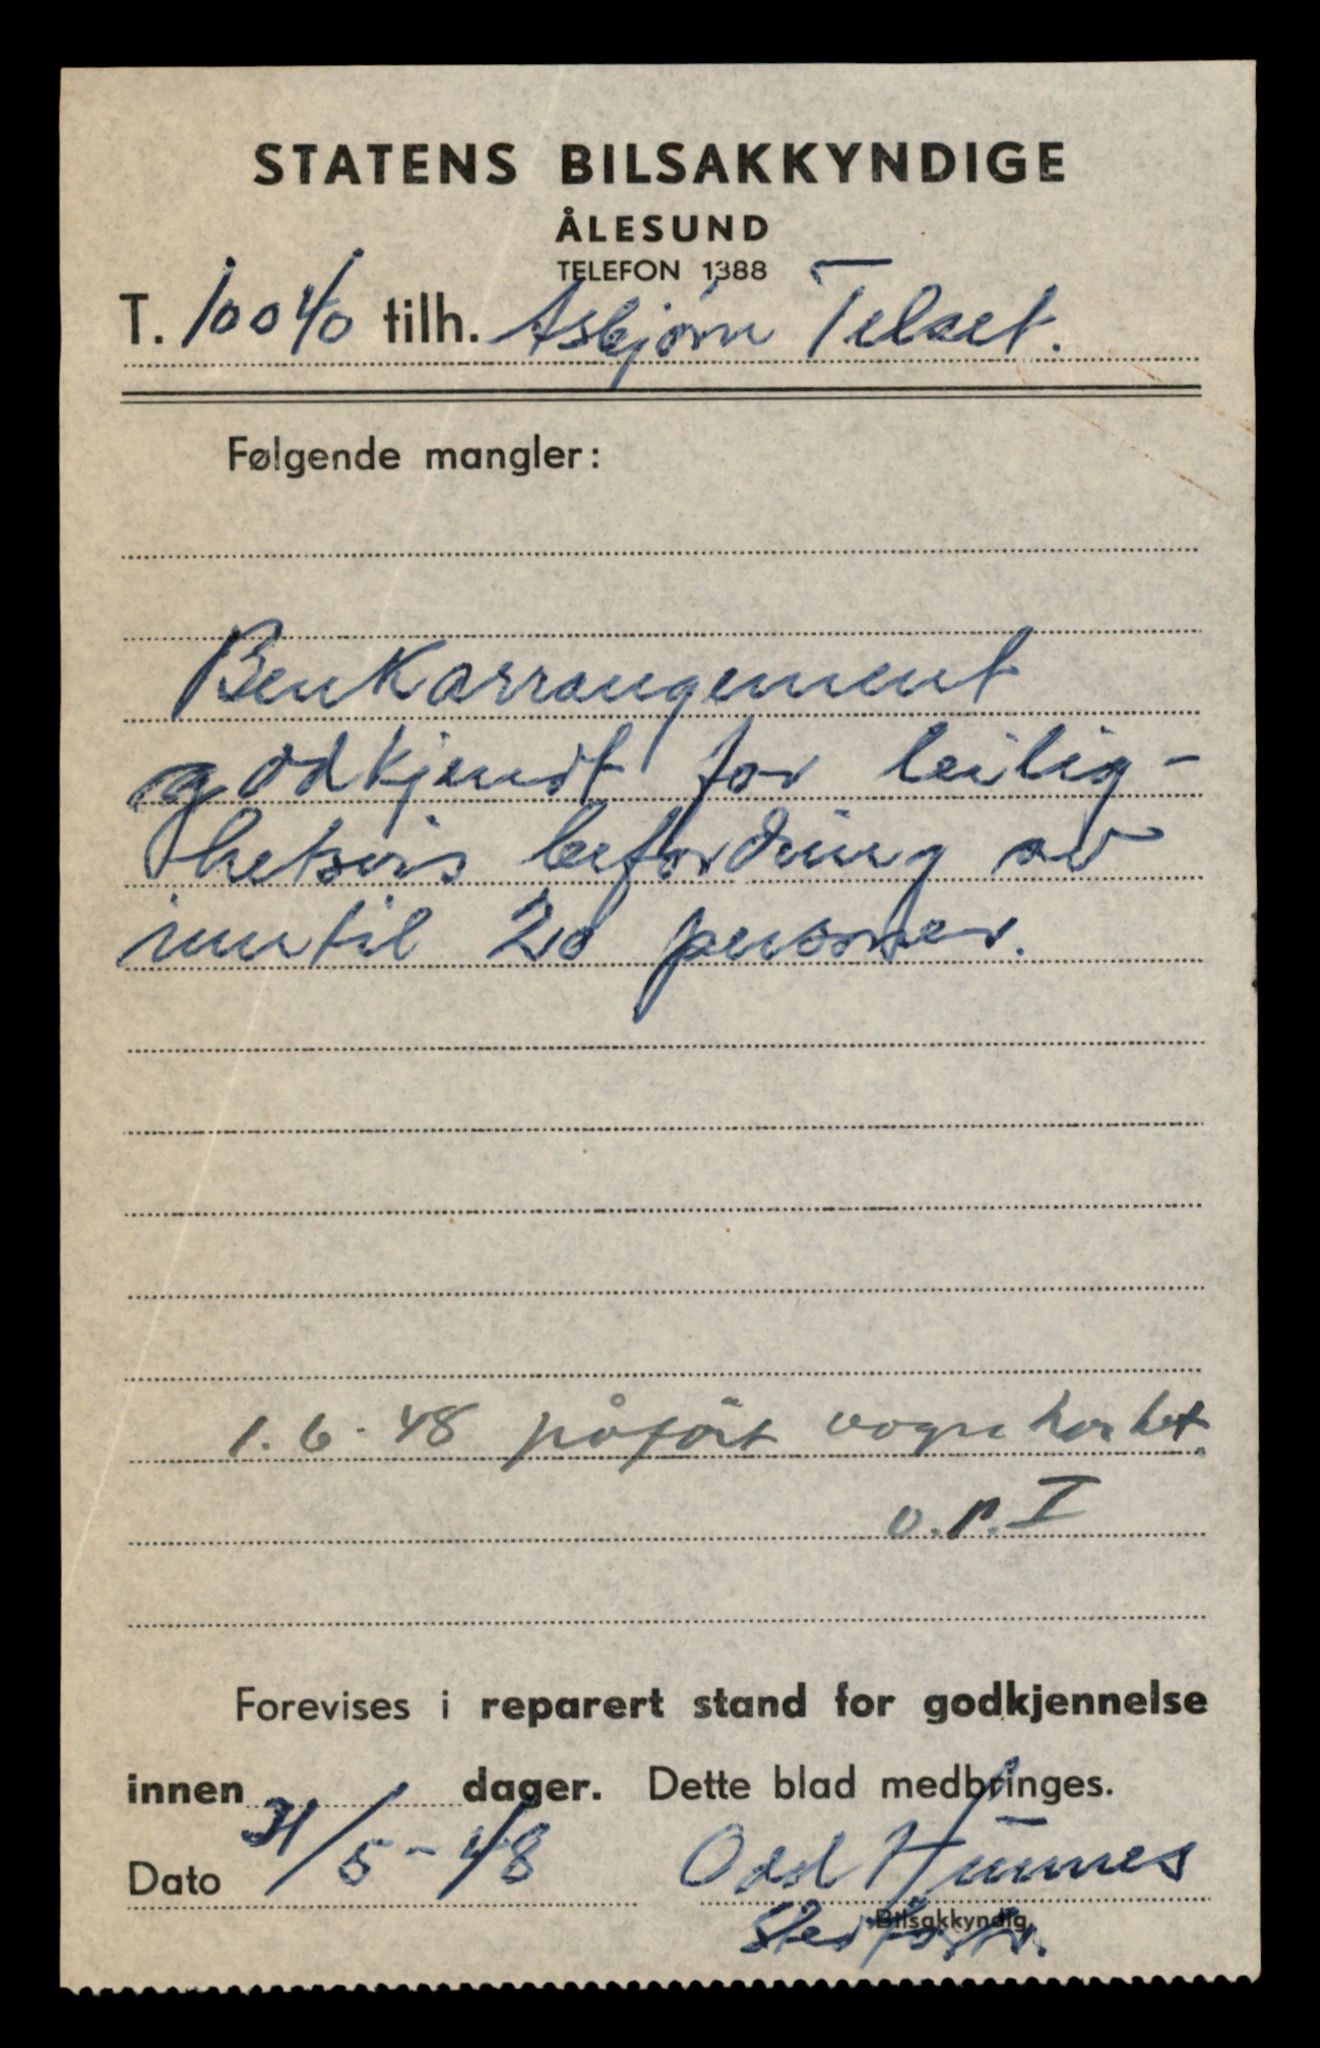 STATENS BILSAKKYNDIGE
ÅLESUND
TELEFON 1388
T. 10040 tilh. Asbjørn Telset.
Følgende mangler:
Benkarrangement
godkjendt for leilig-
hetsvis befordring av
inntil 20 personer.
1.6.48 påført vognkortet
o.r. I
Forevises i reparert stand for godkjennelse
innen dager. Dette blad medbringes.
Dato 31/5-48 Odd Hunnes
Bilsakkyndig.